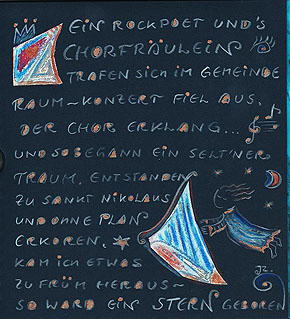 EIN ROCKPOET UND's
CHORFRÄULEIN
TRAFEN SICH IM GEMEINDE
RAUM~KONZERT FIEL AUS,
DER CHOR ERKLANG...
UND SO BEGANN EIN SELT'NER
TRAUM, ENTSTANDEN
ZU SANKT NIKOLAUS
UND OHNE PLAN
ERKOREN,
KAM ICH ETWAS
ZU FRÜH HERAUS~
SO WARD EIN STERN GEBOREN
JZ.